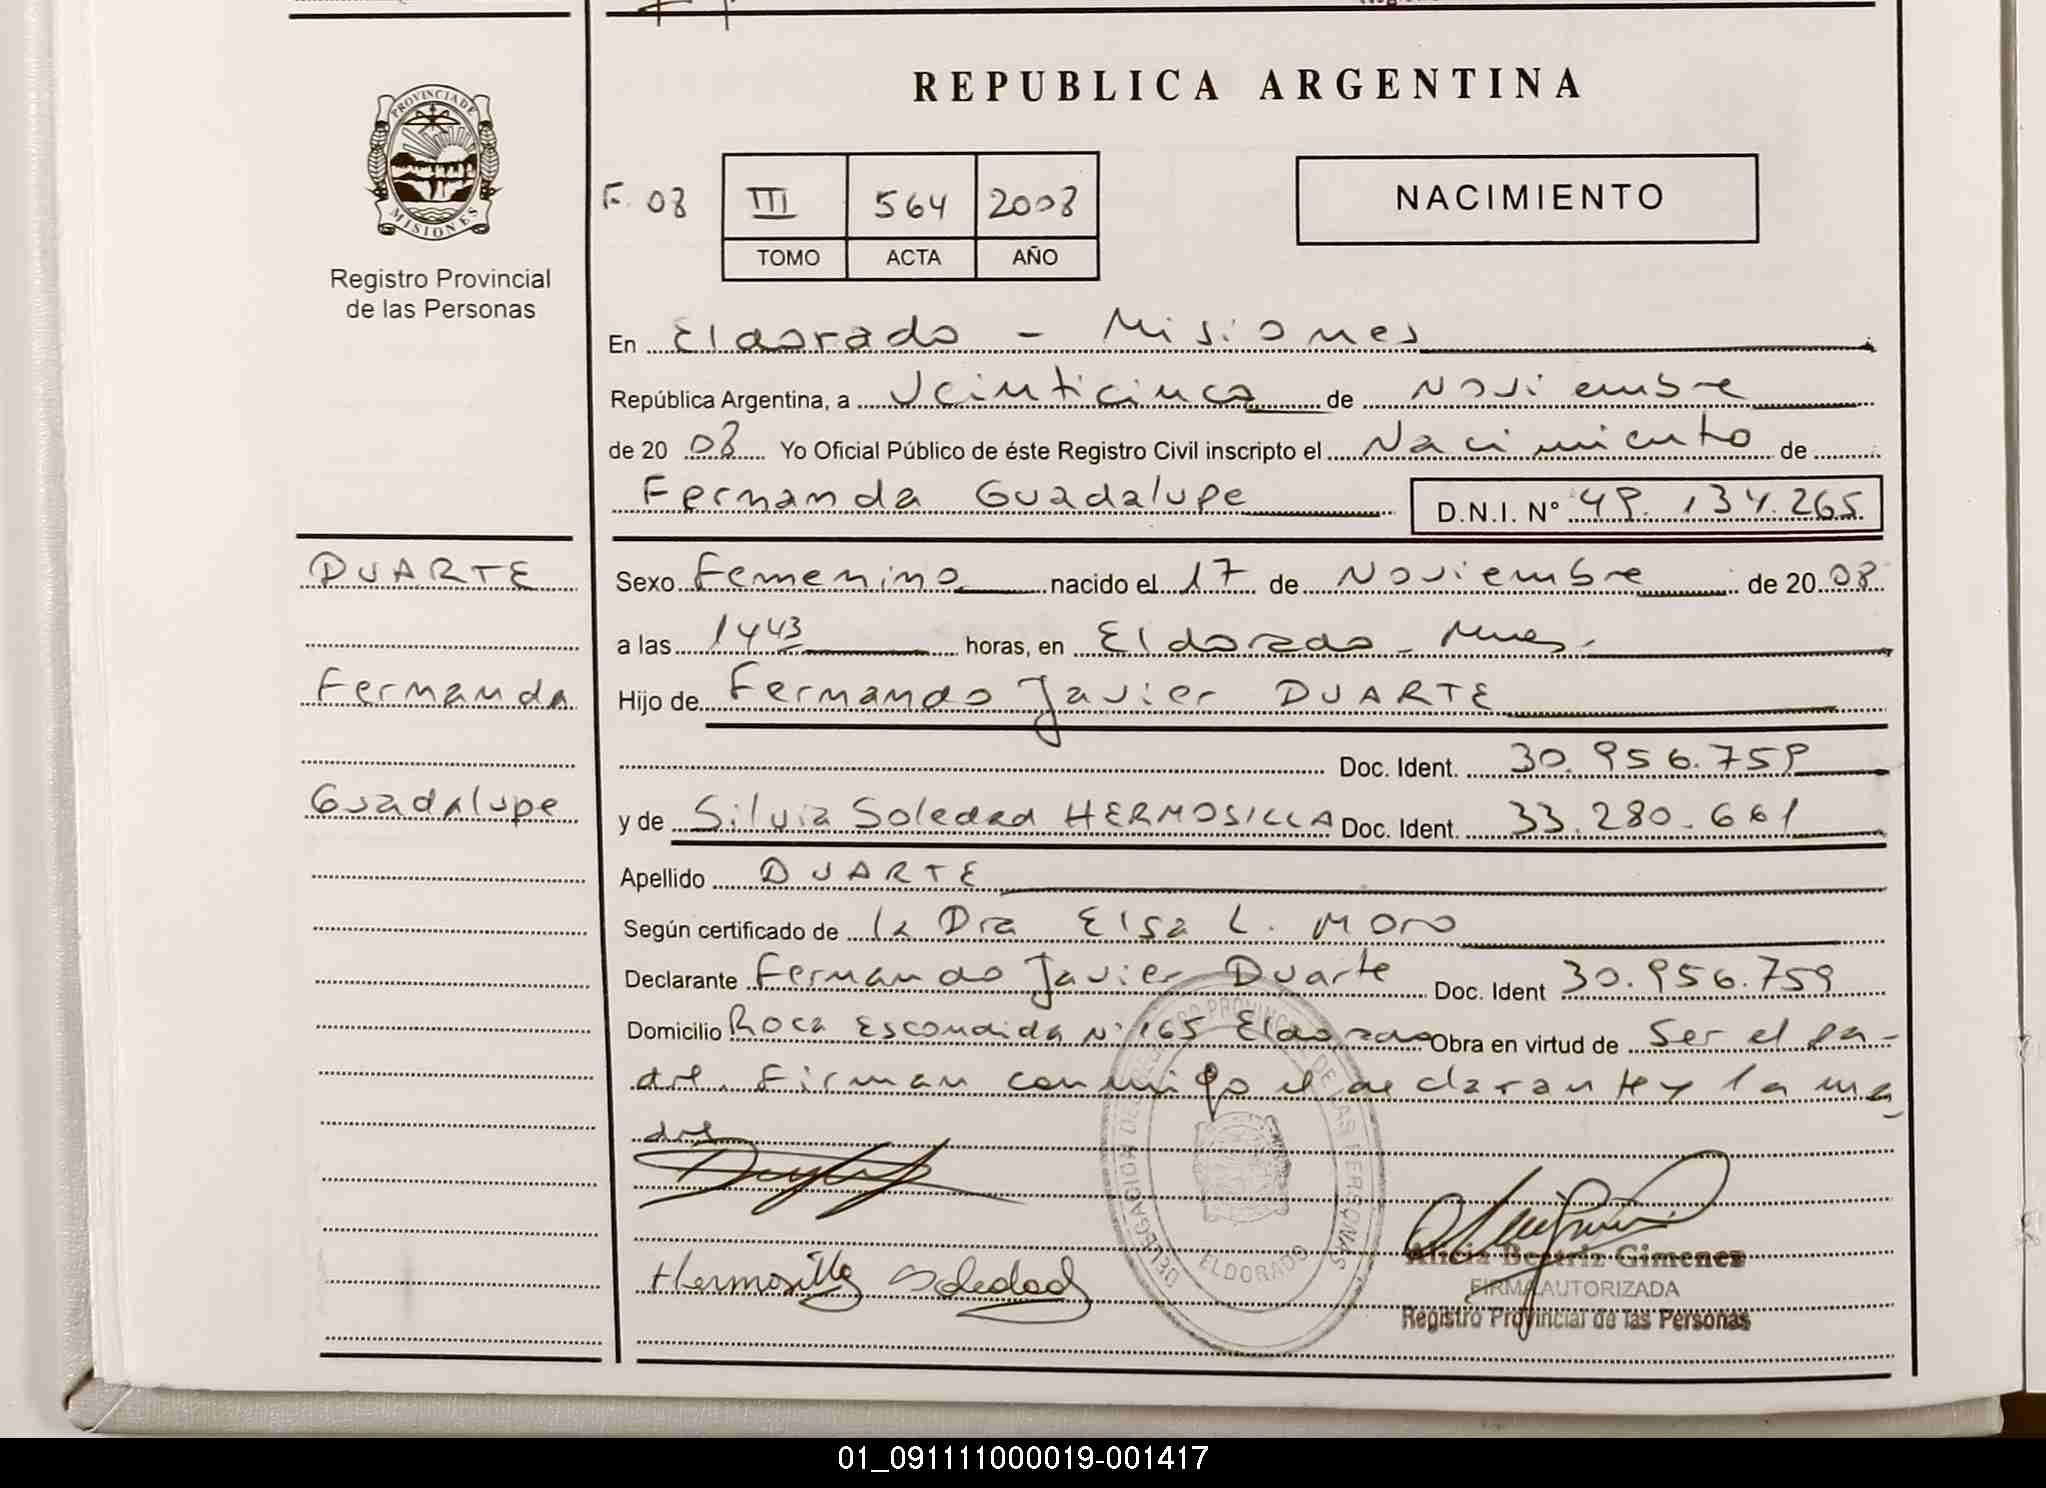 REPUBLICA ARGENTINA
PROVINCIA DE MISIONES
Registro Provincial
de las Personas
F. 08
III 564 2008
TOMO ACTA AÑO
NACIMIENTO
En Eldorado - Misiones
República Argentina, a Veinticinco de Noviembre
de 20 08 Yo Oficial Público de éste Registro Civil inscripto el Nacimiento de
Fernanda Guadalupe D.N.I. N° 49.134.265
DUARTE
Fernanda
Guadalupe
Sexo Femenino nacido el 17 de Noviembre de 20 08
a las 1443 horas, en Eldorado - Mnes.
Hijo de Fernando Javier DUARTE
Doc. Ident. 30.956.759
y de Silvia Soledad HERMOSILLA Doc. Ident. 33.280.661
Apellido DUARTE
Según certificado de la Dra Elsa L. Moro
Declarante Fernando Javier Duarte Doc. Ident 30.956.759
Domicilio Roca Escondida N° 165 Eldorado Obra en virtud de Ser el pa-
dre. Firman conmigo el declarante y la ma
dre
Hermosilla Soledad
DELEGACION DEL REGISTRO PROVINCIAL DE LAS PERSONAS
ELDORADO
Alicia Beatriz Gimenez
FIRMA AUTORIZADA
Registro Provincial de las Personas
01_091111000019-001417